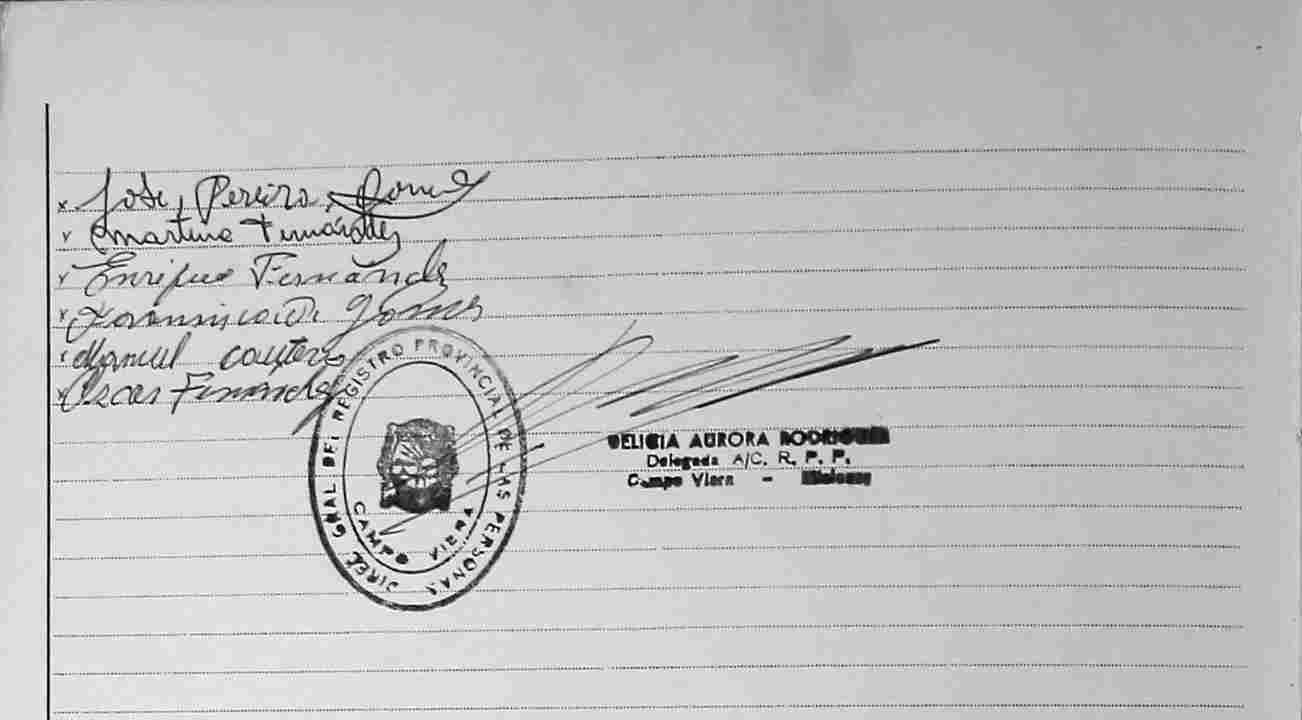 x Jose, Pereira, Gomez
x Martina Fernández
x Enrique Fernández
x Gomes
x Manuel
x Oscar Fernandez
DIREC. GRAL. DEL REGISTRO PROVINCIAL DE LAS PERSONAS
CAMPO VIERA
DELICIA AURORA RODRIGUEZ
Delegada A/C. R. P. P.
Campo Viera - Misiones